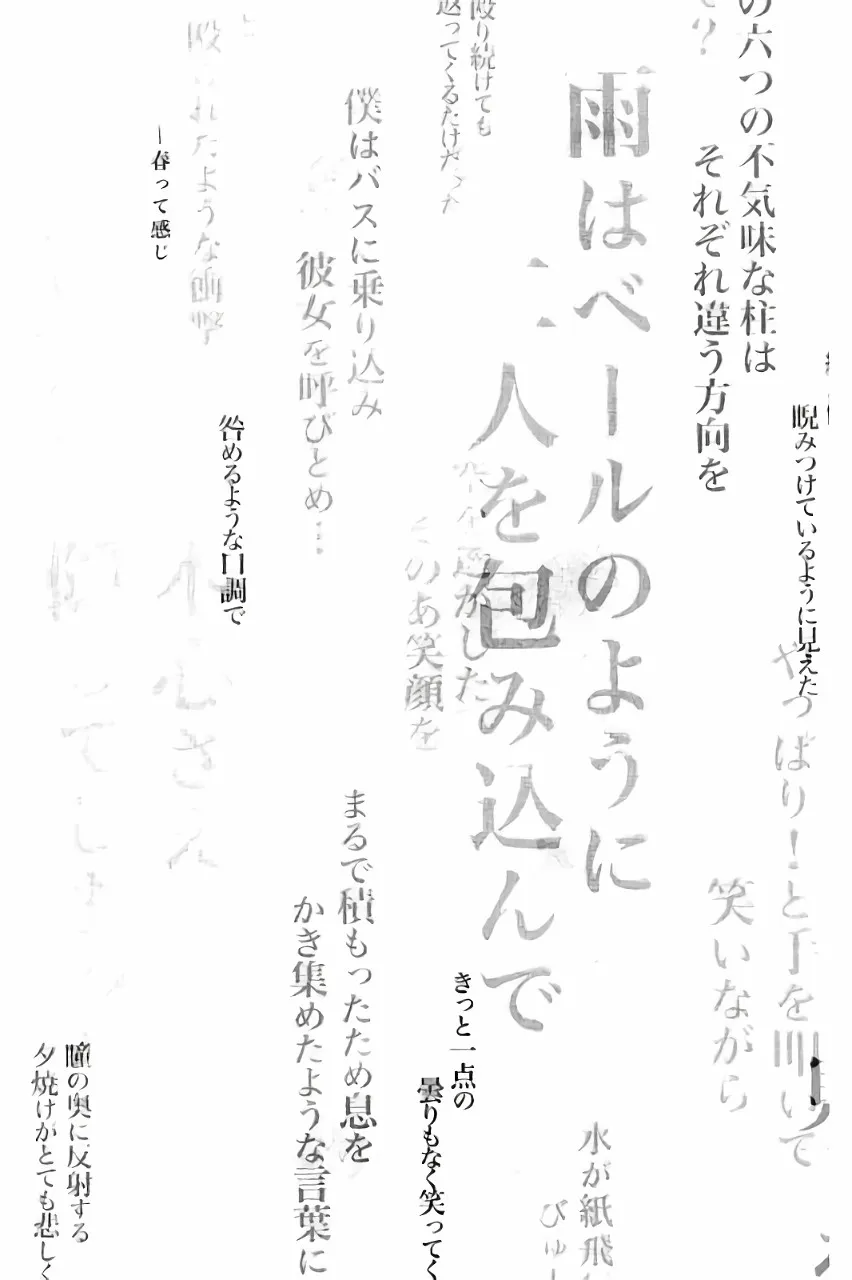 の六つの不気味な柱は
それぞれ違う方向を
睨みつけているように見えた
やっぱり！と手を叩いて
笑いながら
雨はベールのように
二人を包み込んで
水が紙飛
びゅ
殴り続けても
返ってくるだけだった
きっと一点の
曇りもなく笑ってく
を逃がした
そのあ笑顔を
僕はバスに乗り込み
彼女を呼びとめ…
まるで積もったため息を
かき集めたような言葉に
咎めるような口調で
殴られたような衝撃
ー春って感じ
心さえ
てしま
瞳の奥に反射する
夕焼けがとても悲しく